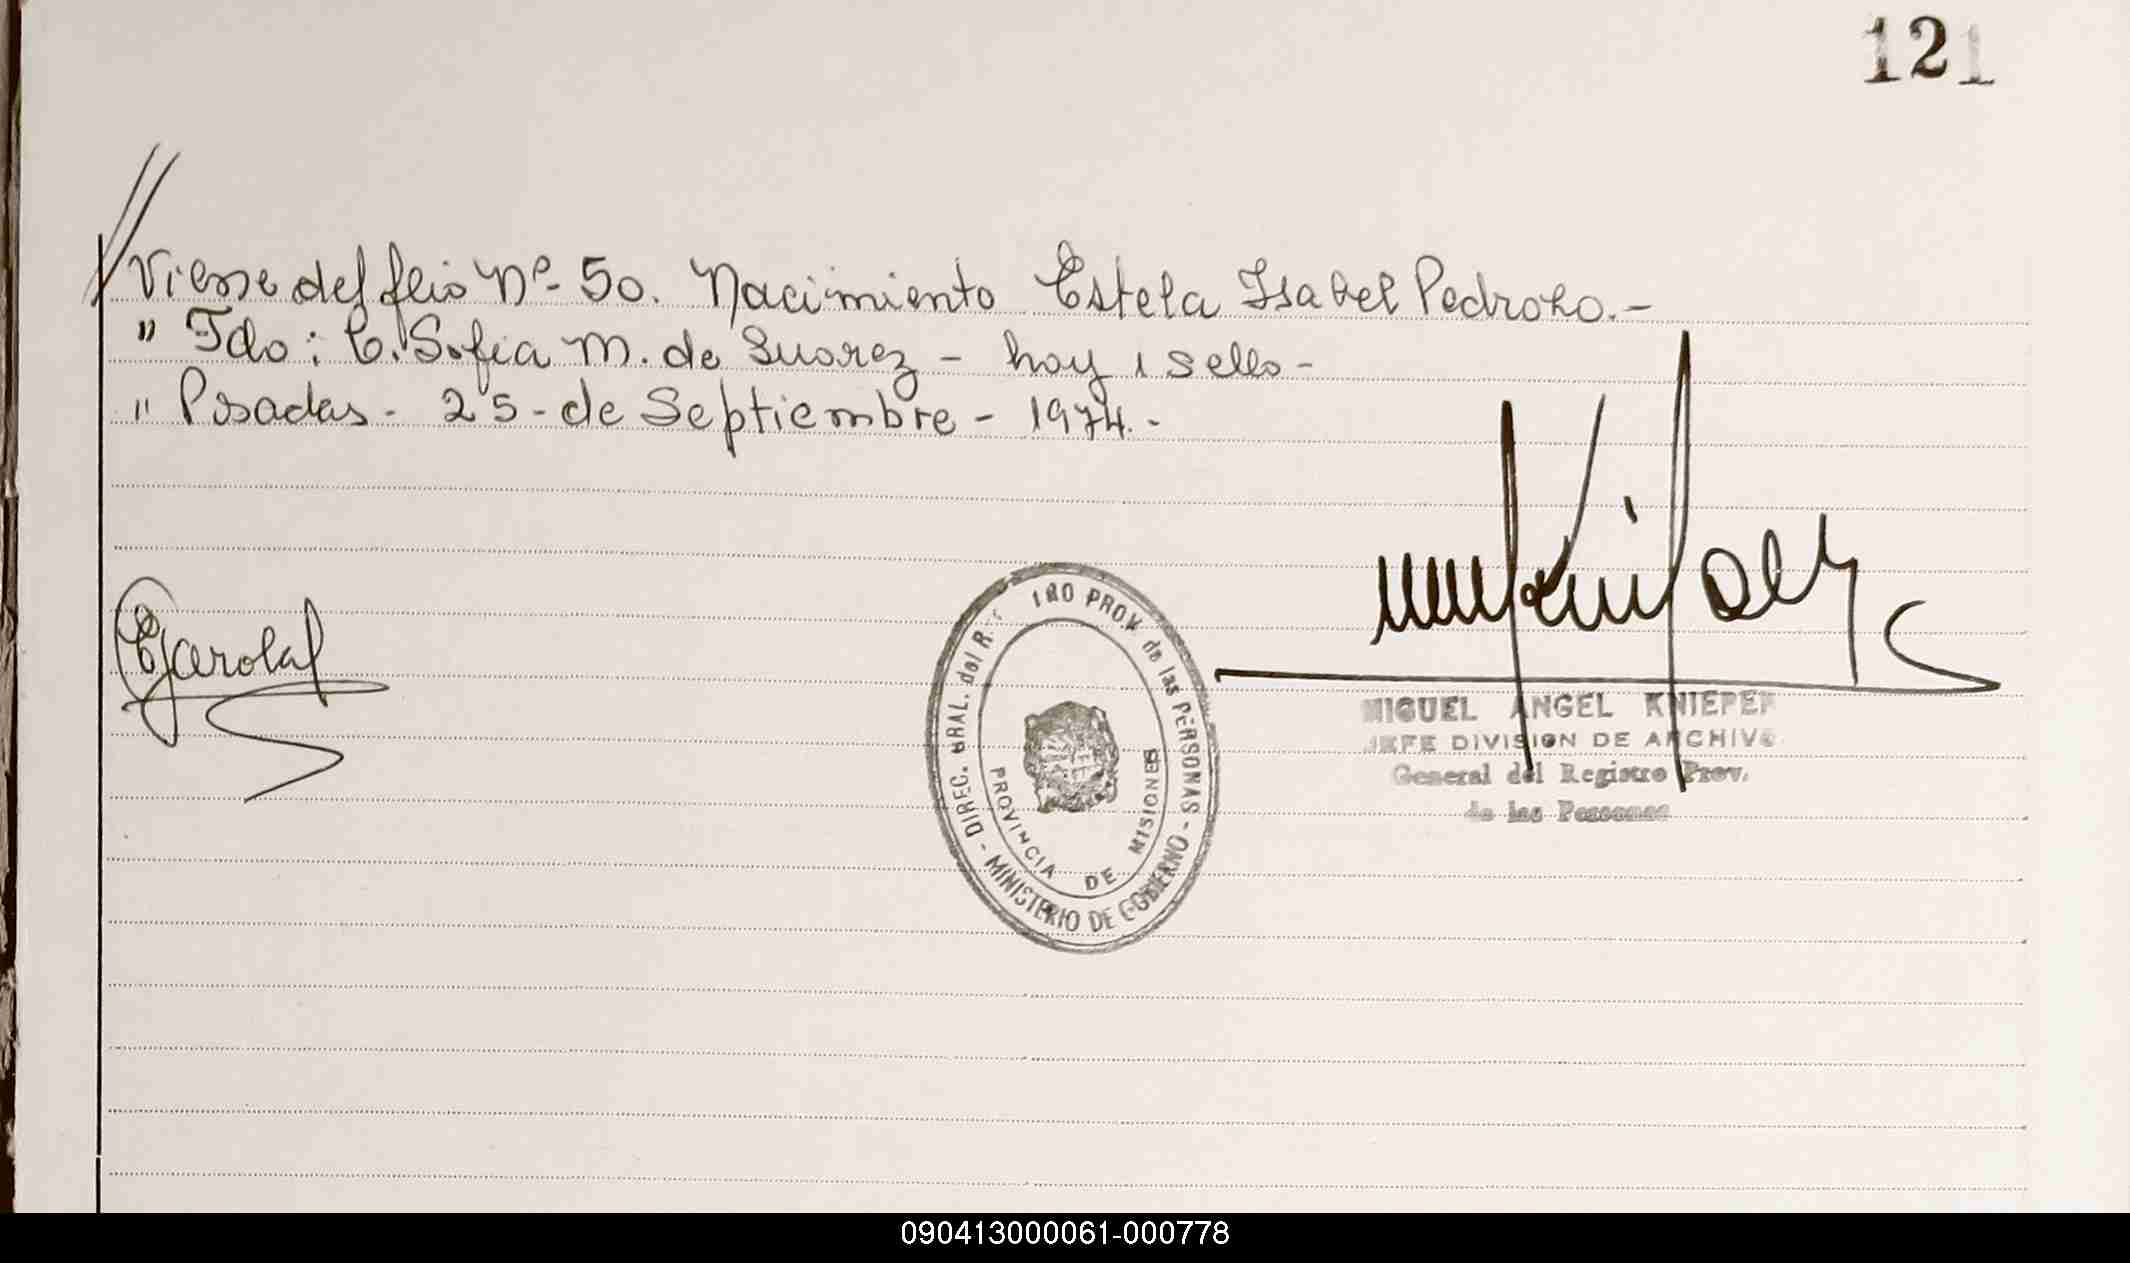 121
// Viene del flio Nº 50. Nacimiento Estela Isabel Pedrozo.-
" Fdo: C. Sofia M. de Suarez - hay 1 sello-
" Posadas - 25 - de Septiembre - 1974.-
DIREC. GRAL. del R PROV. de las PERSONAS - MINISTERIO DE GOBIERNO -
PROVINCIA DE MISIONES
MIGUEL ANGEL KNIEPER
JEFE DIVISION DE ARCHIVO
General del Registro Prov.
de las Personas
090413000061-000778